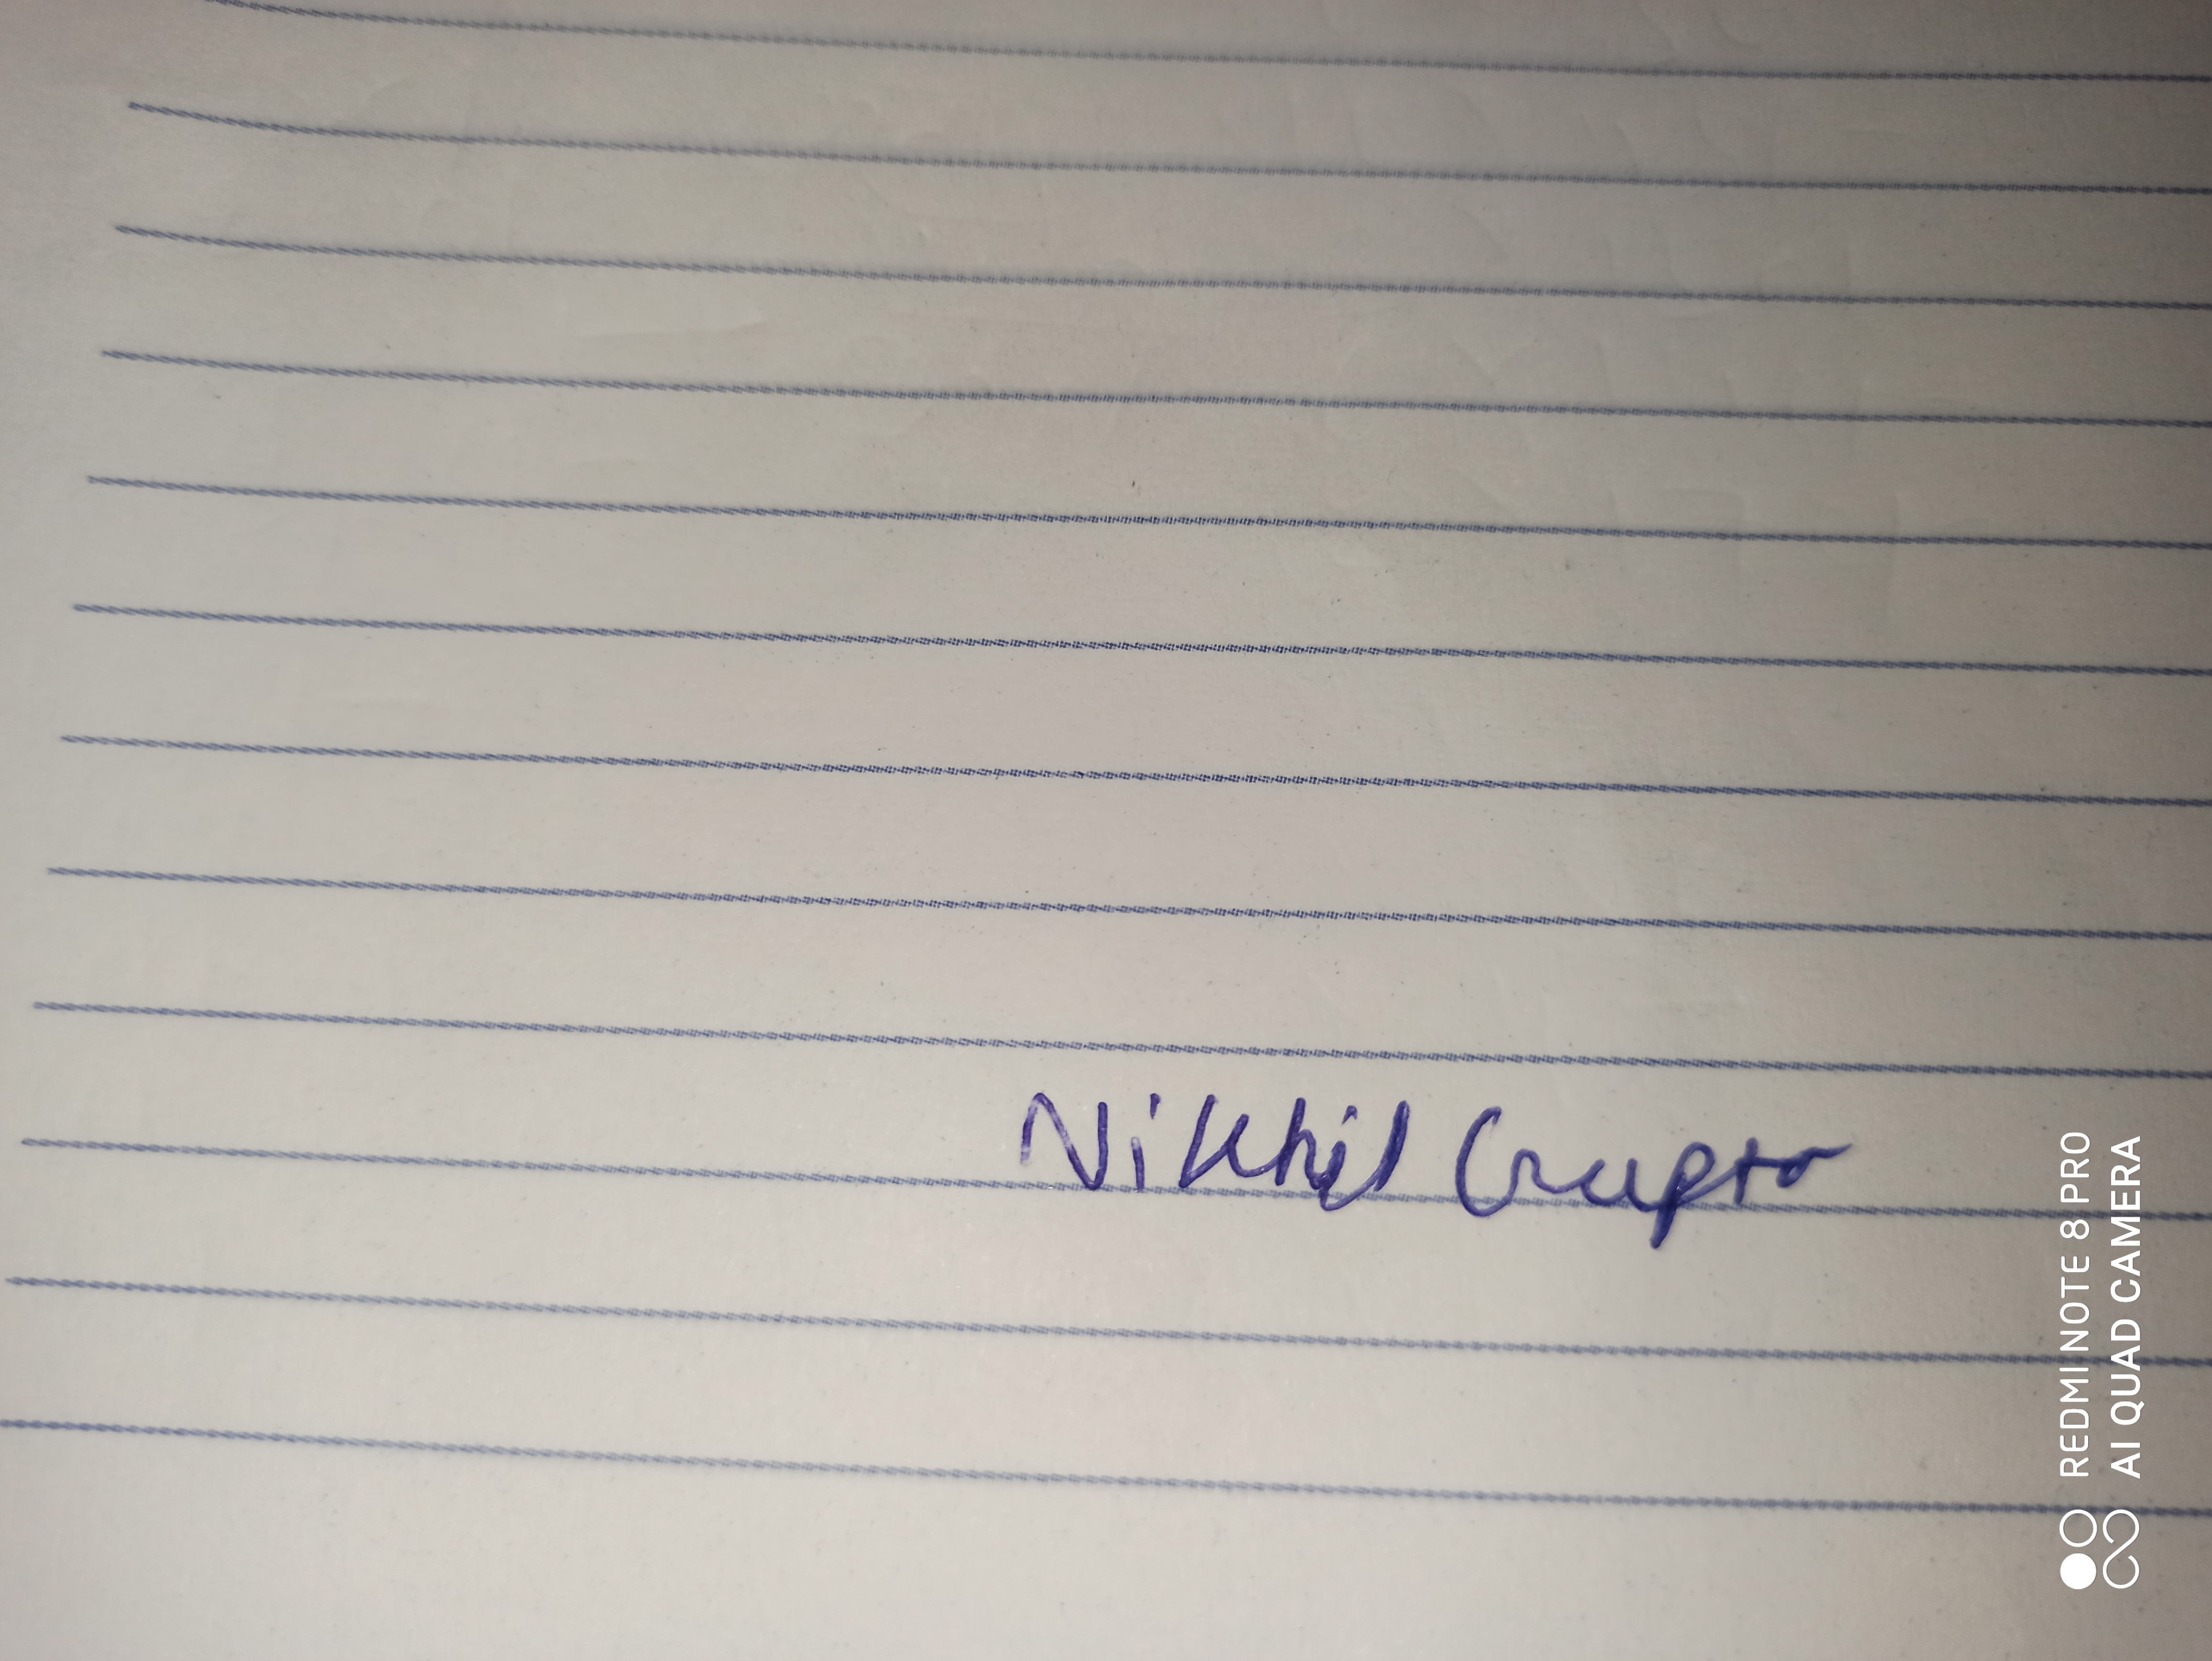 Nikhil Gupta
REDMI NOTE 8 PRO
AI QUAD CAMERA